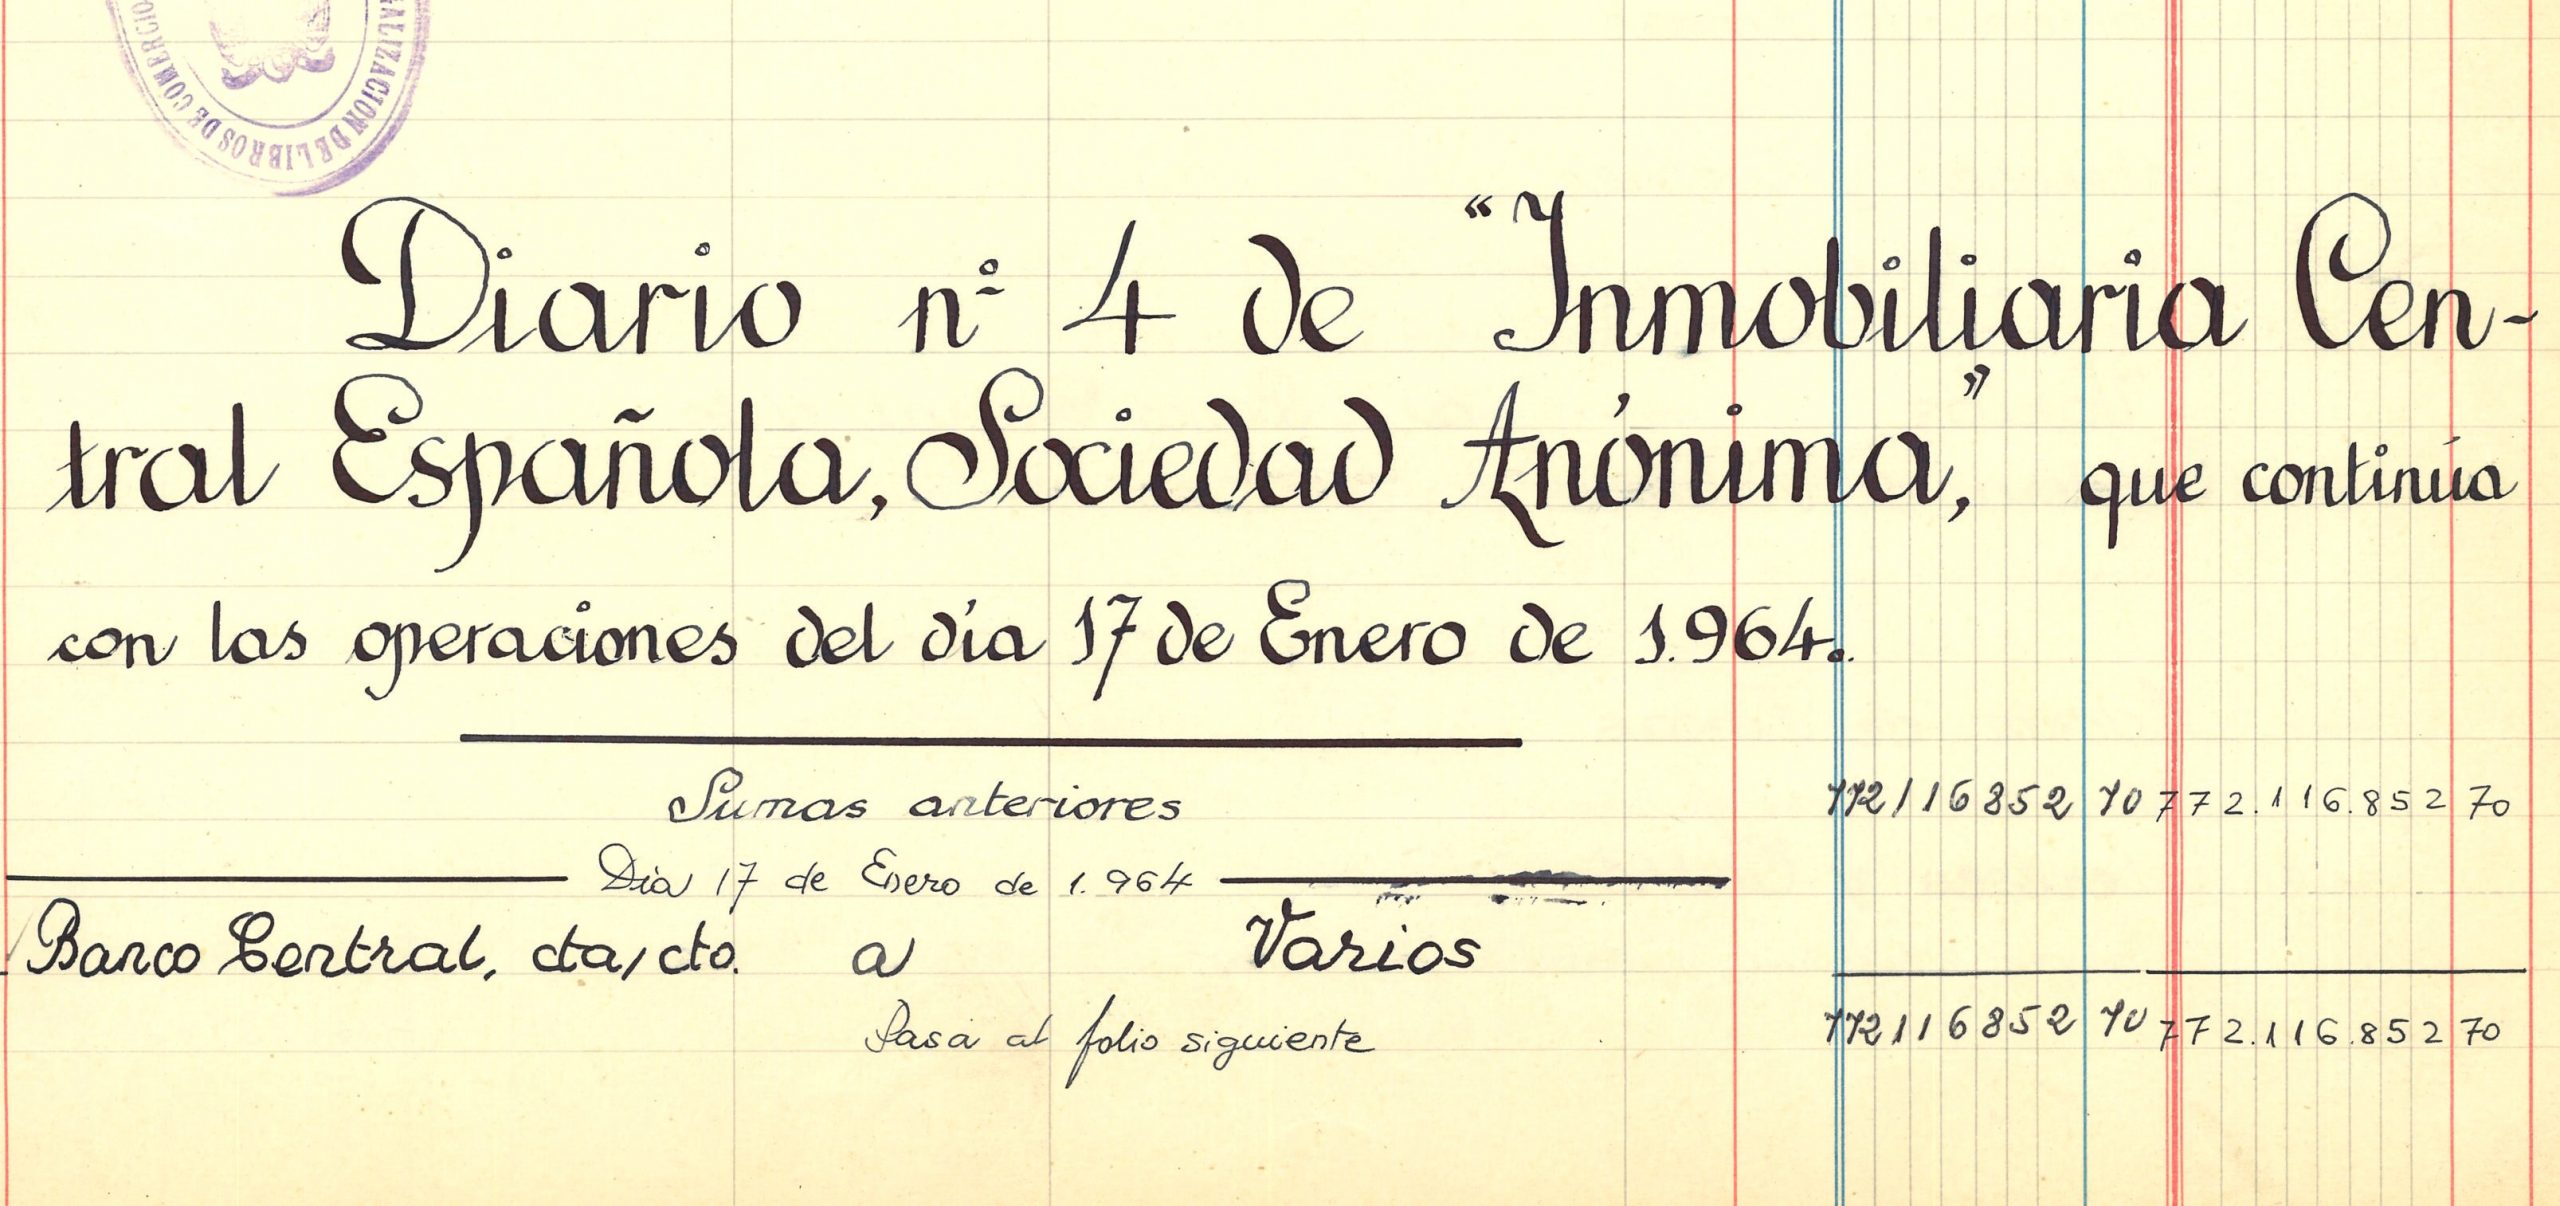 ALIZACION DE LIBROS DE COMERCIO
Diario nº 4 de “Inmobiliaria Cen-
tral Española, Sociedad Anónima”, que continúa
con las operaciones del día 17 de Enero de 1.964.
Sumas anteriores 772116852 70 772.116.852 70
Dia 17 de Enero de 1.964
Banco Central, cta/cto. a Varios
Pasa al folio siguiente 772116852 70 772.116.852 70